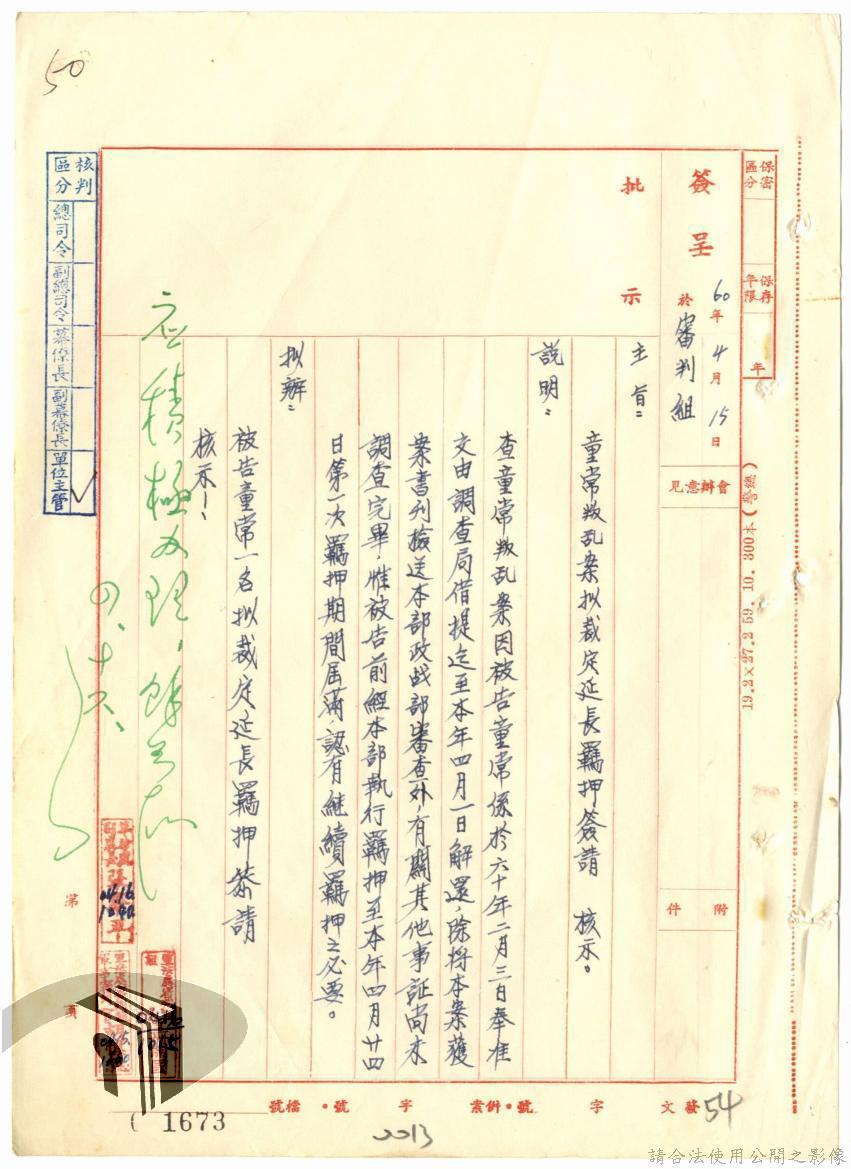 50
保密區分
保存年限
年
19.2×27.2 59. 10. 300本(警總)
簽呈
60年4月15日
於審判組
會辦意見
附件
批示
主旨:
童常叛乱案拟裁定延長羈押簽請 核示。
說明:
查童常叛乱案因被告童常係於六十年二月三日奉准
交由調查局借提迄至本年四月一日解還,除將本案獲
案書刊檢送本部政战部審查外,有關其他事証尚未
調查完畢,惟被告前經本部執行羈押至本年四月廿四
日第一次羈押期間屆滿,認有継續羈押之必要。
拟辦:
被告童常一名拟裁定延長羈押恭請
核示!
应積極办理,
四、十六、
核判區分
總司令
副總司令
幕僚長
副幕僚長
單位主管
04.16
第
頁
發文
字
號•併案
字
號•
檔號
54
2013
1673
請合法使用公開之影像